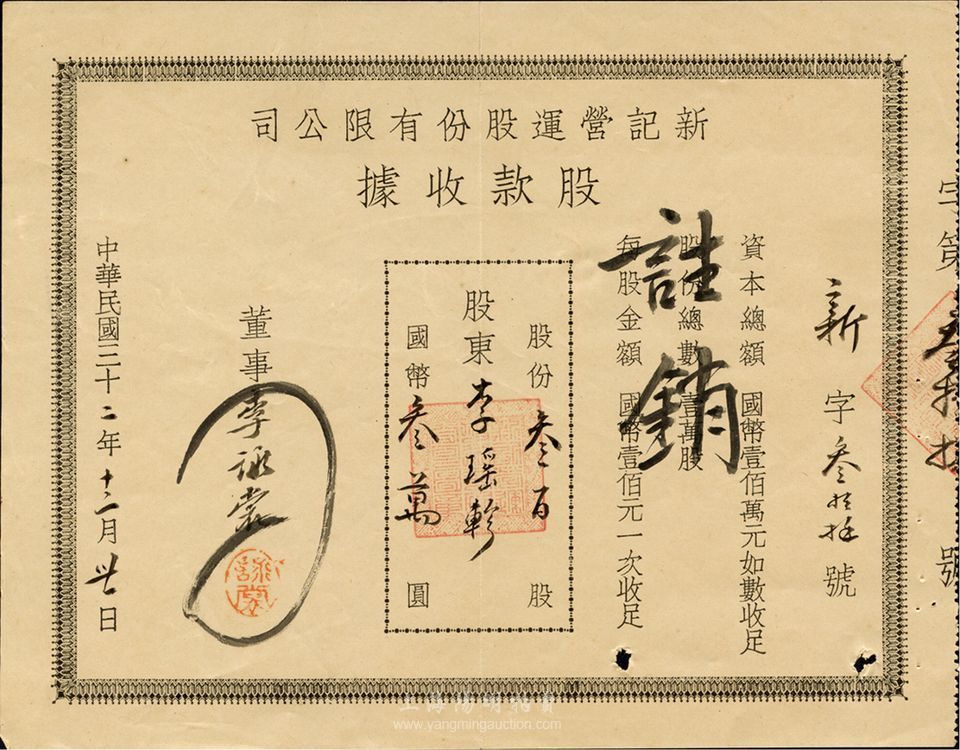 新記營運股份有限公司
股款收據
字第
號
新字叁拾號
資本總額 國幣壹佰萬元如數收足
股份總數 壹萬股
每股金額 國幣壹佰元一次收足
註銷
股份叁百股
股東李瑶軫
國幣叁萬圓
董事李詠裳
中華民國三十二年十二月廿日
上海陽明拍賣
www.yangmingauction.com